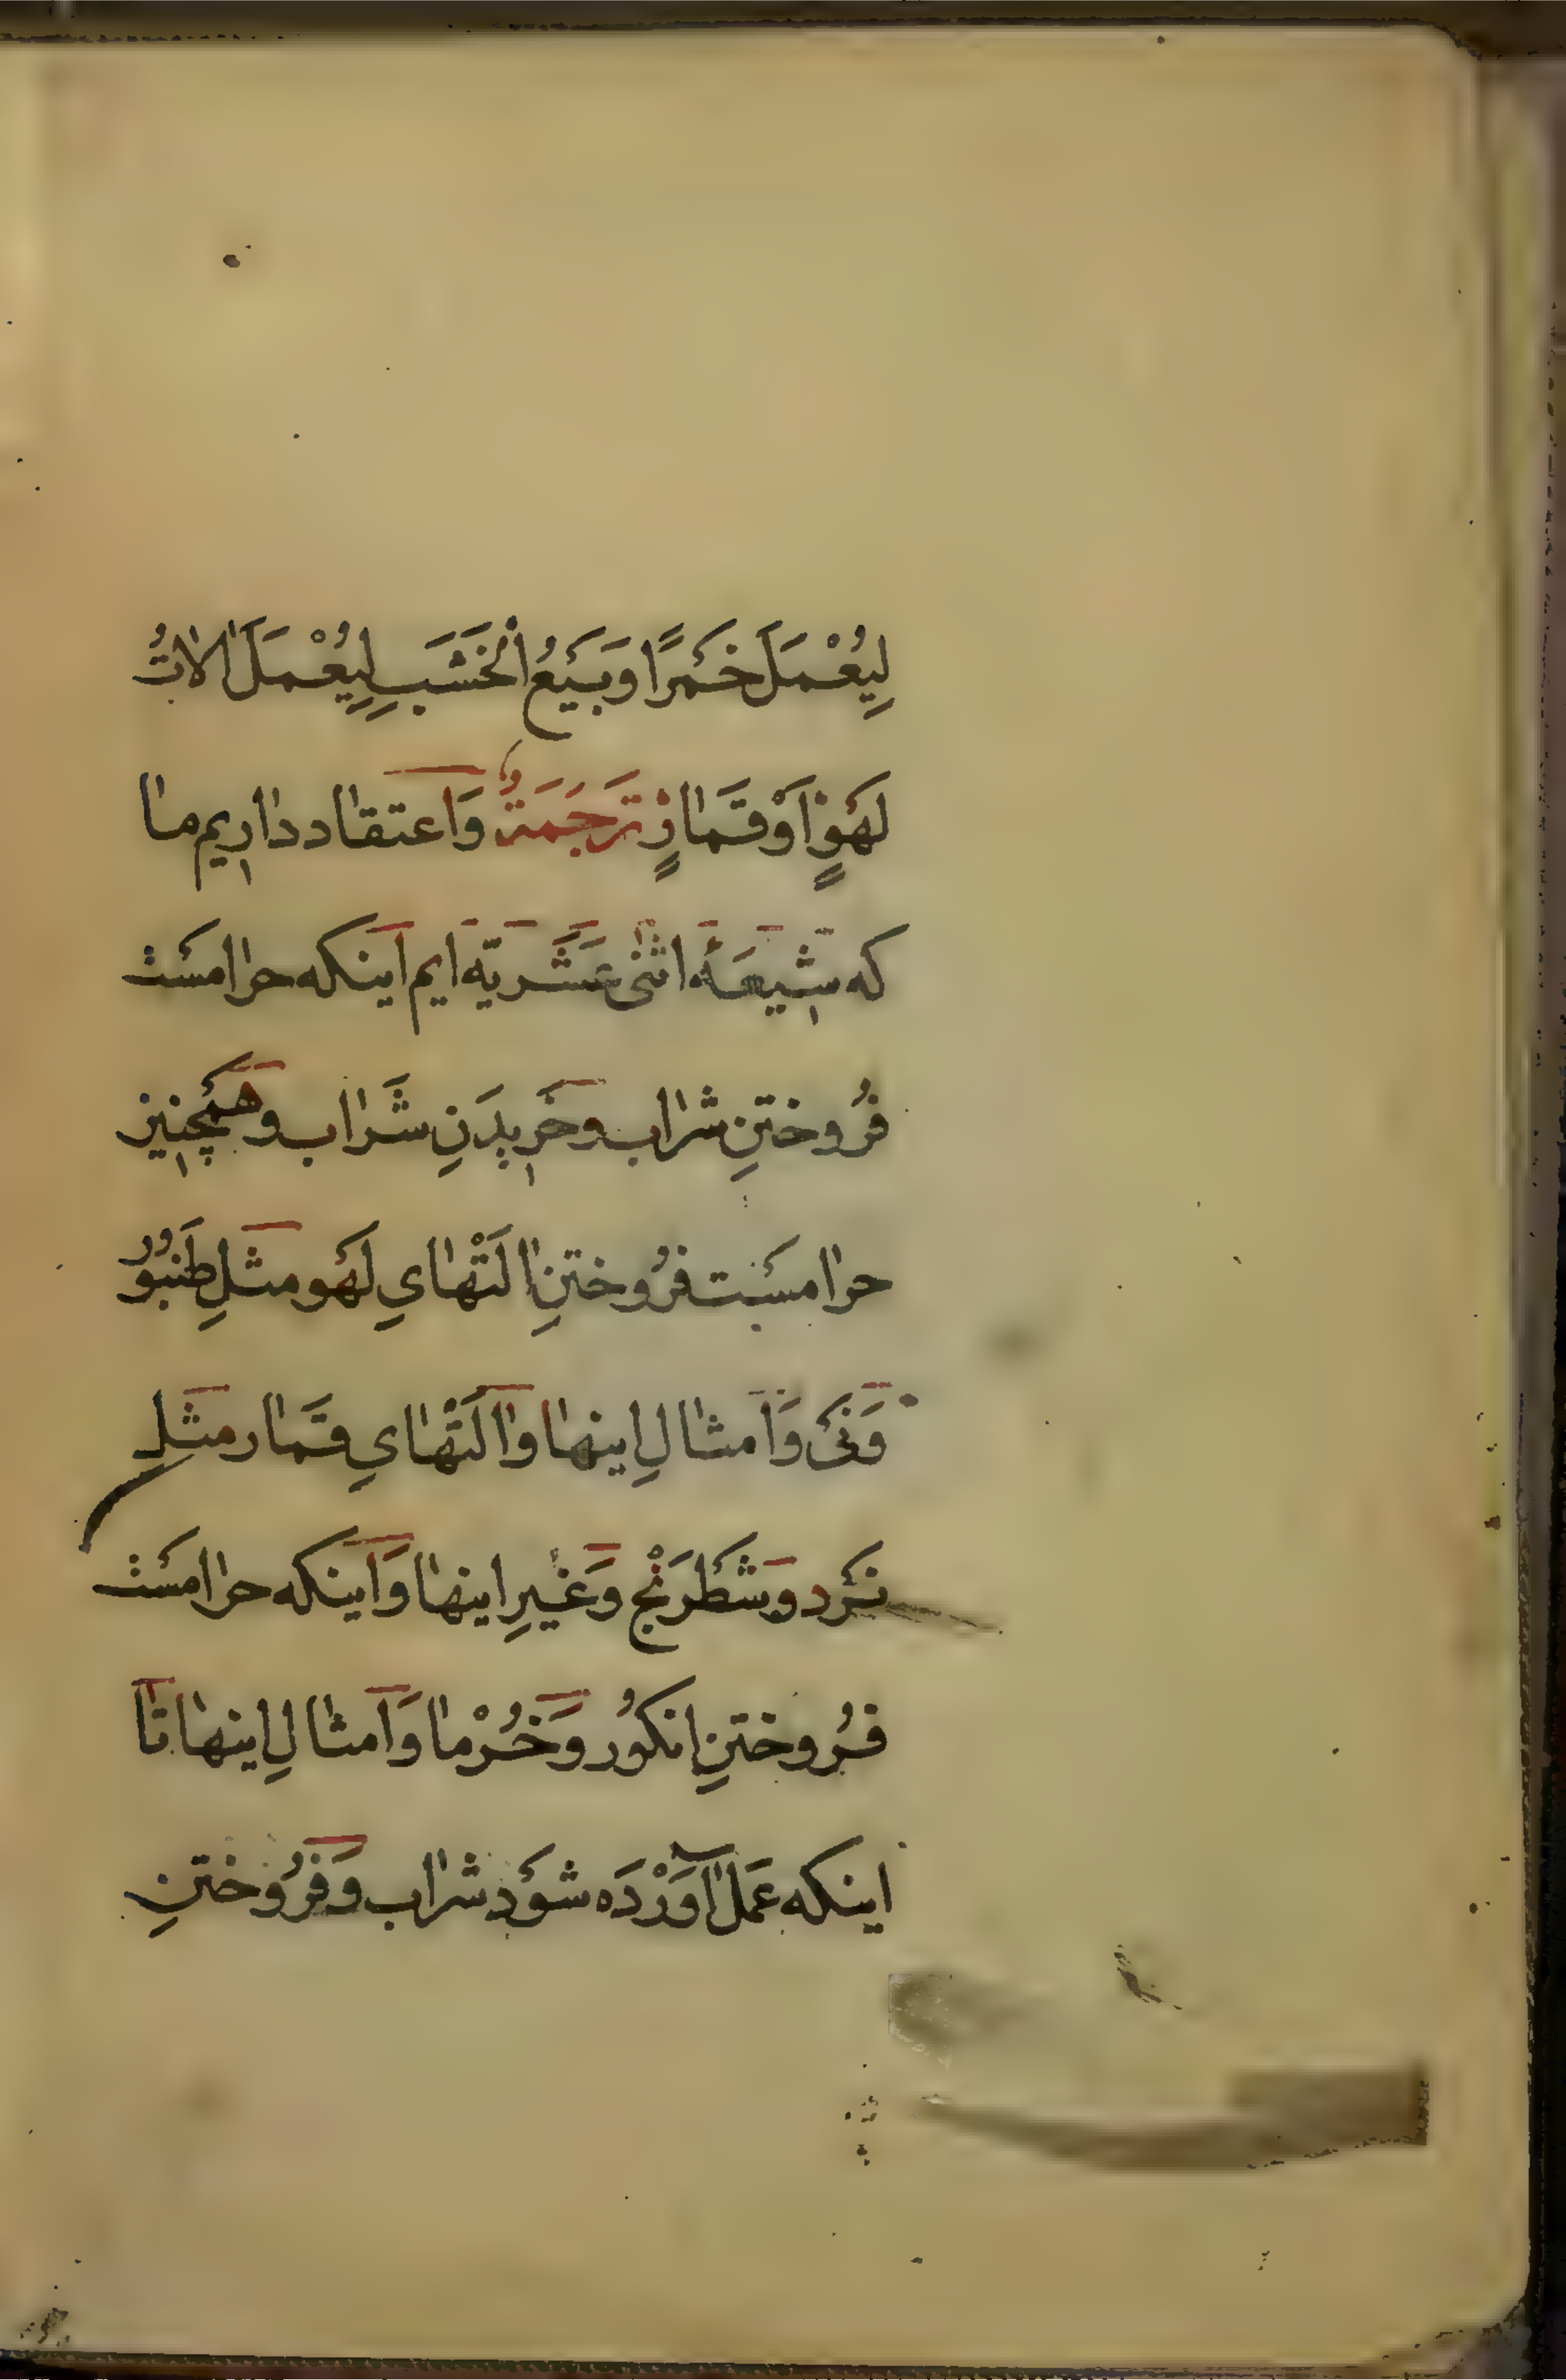 لِيُعْمَلَ خَمْرًا وَبَيْعُ الْخَشَبِ لِيُعْمَلَ الاتُ
لَهْوٍ اَوْ قَمَارٍ تَرجَمَةُ وَاعتقاد داریم ما
که شیعَهٔ اثنی عَشَریّه ایم اینکه حرامسْت
فرُوختنِ شراب وخَریدَنِ شَراب وهمْچنین
حرامسْت فرُوختنِ الَتْهایِ لَهْو مثلِ طَنبُور
وَنَیْ وَاَمثالِ اینها وَالَتْهایِ قَمار مثلِ
نَرْد وَشَطْرَنْج وَغَیرِ اینها وَاینکه حرامسْت
فرُوختنِ انکُور وَخُرْما وَاَمثالِ اینها تا
اینکه عَمَل آوَرْدَه شوَد شراب وَفرُوختنِ